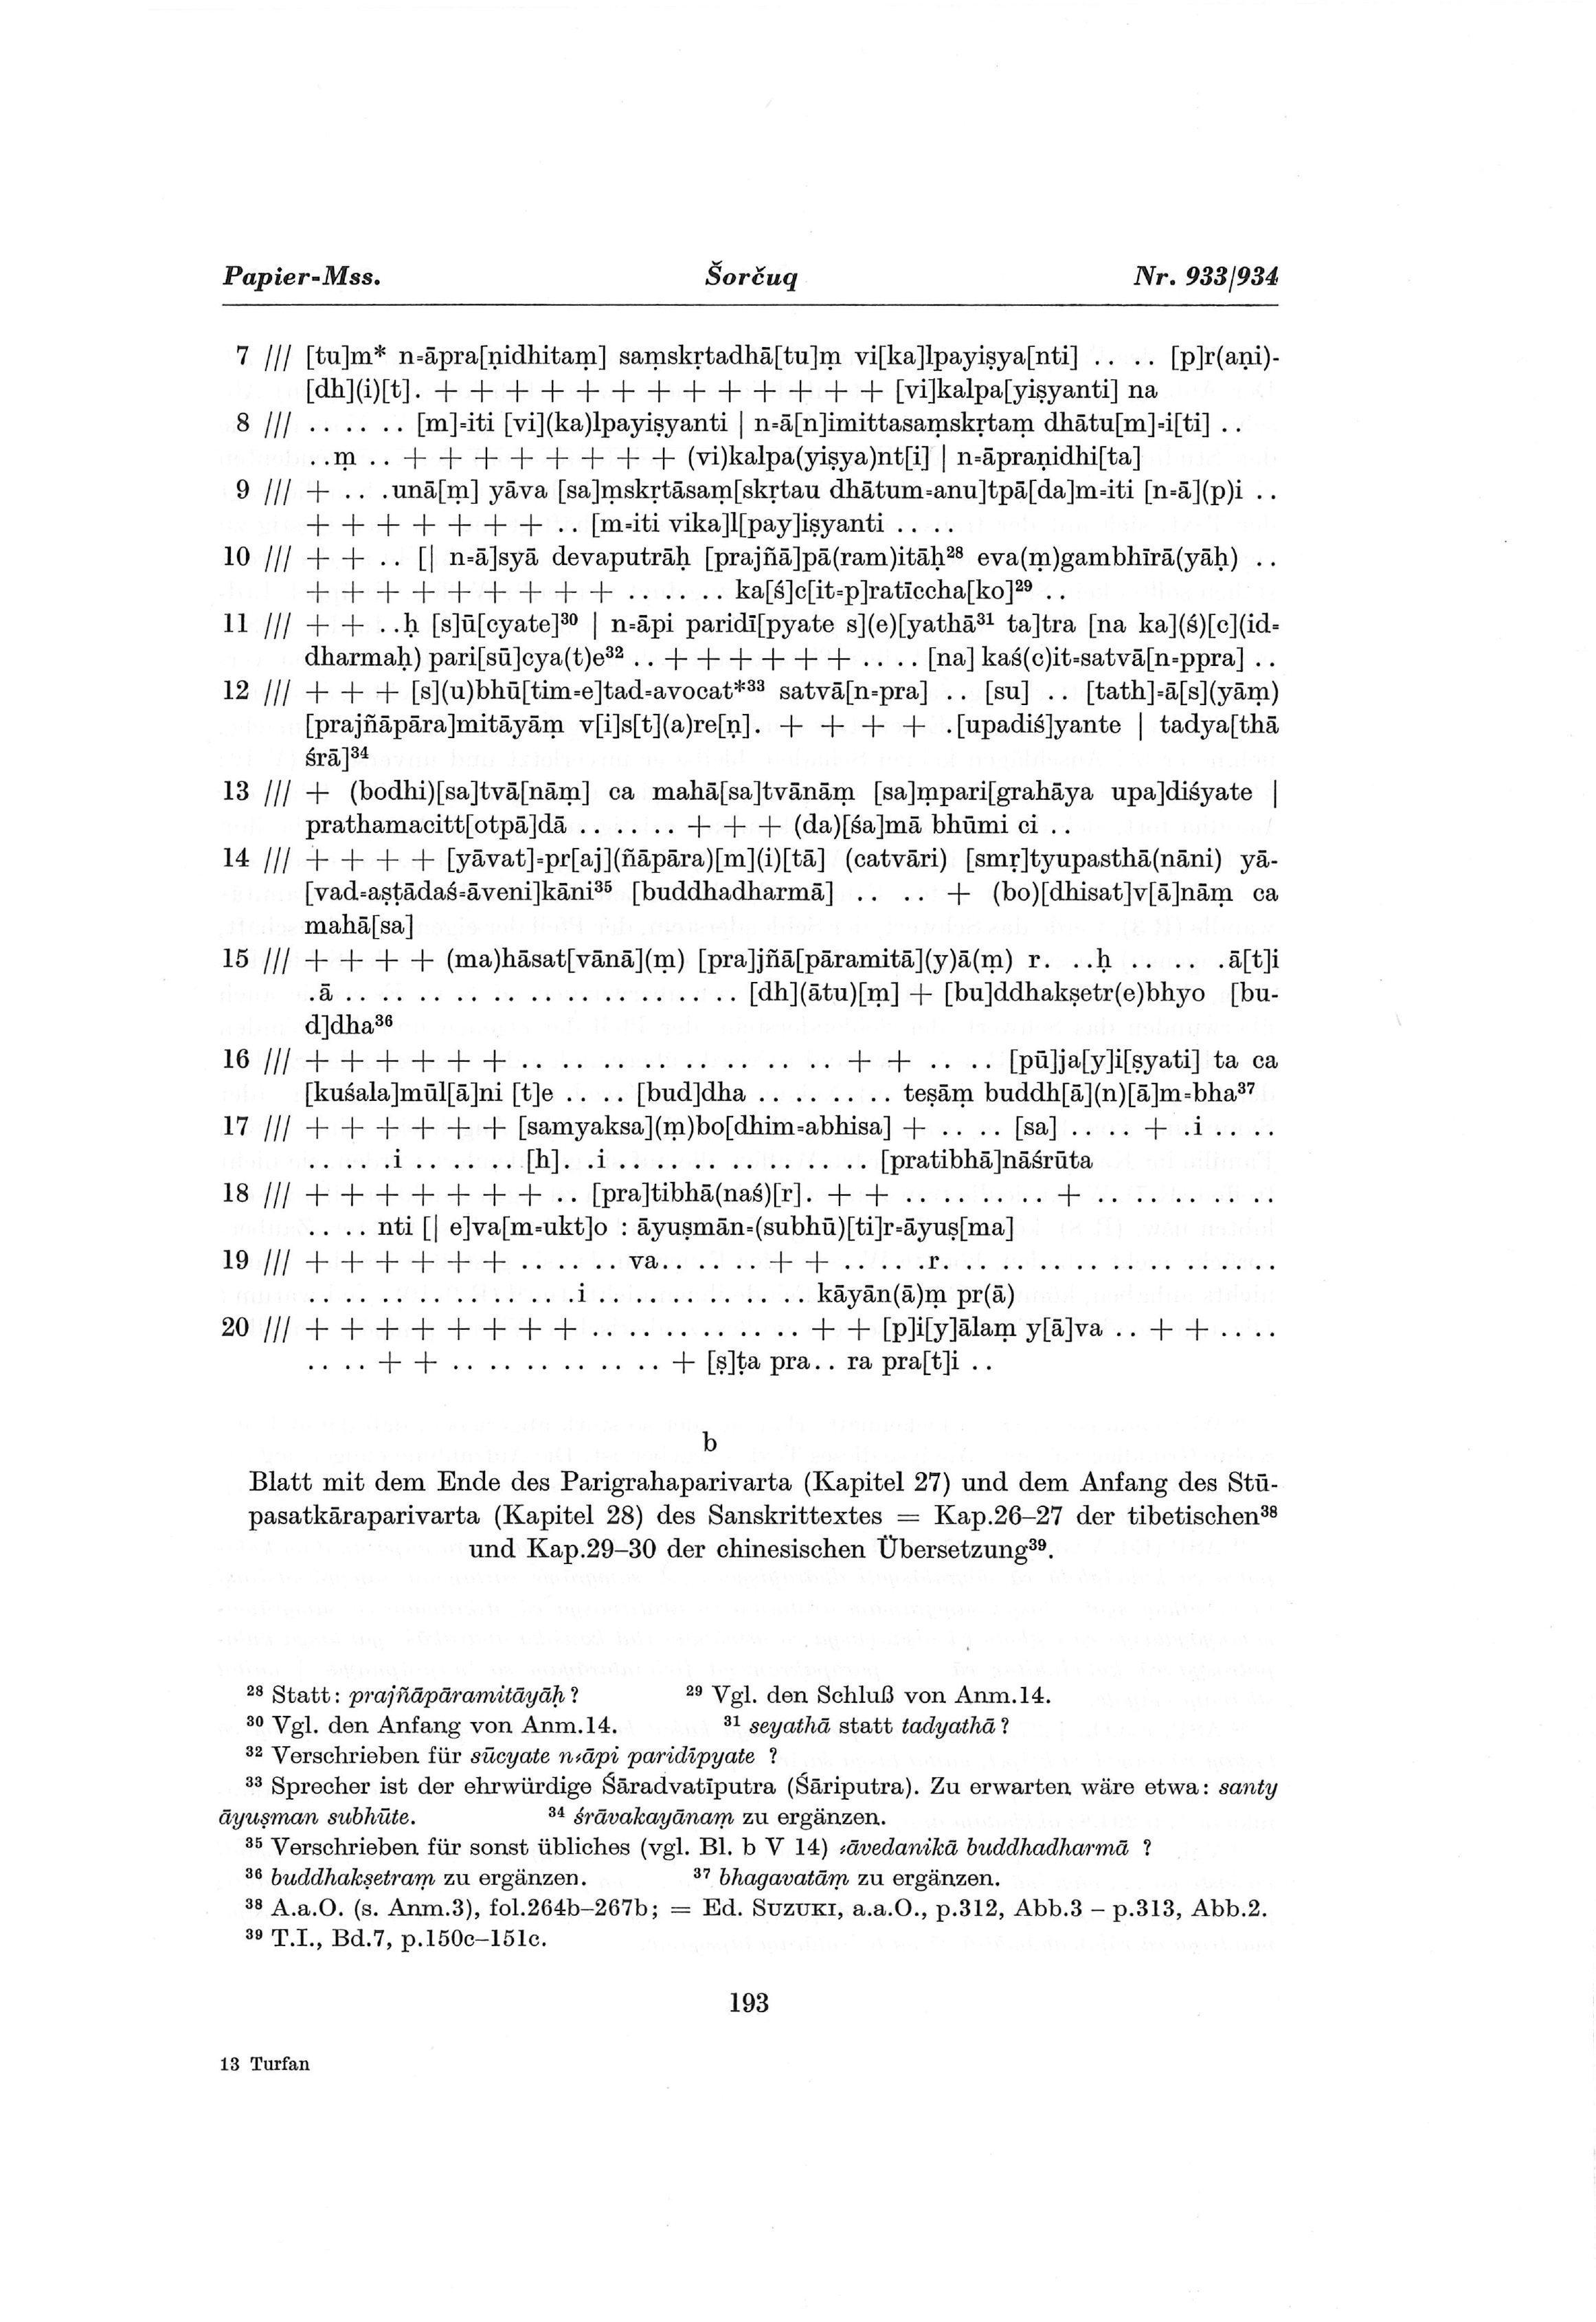 Papier-Mss. Šorčuq Nr. 933/934
7 /// [tu]m* n=āpra[ṇidhitaṃ] saṃskṛtadhā[tu]ṃ vi[ka]lpayiṣya[nti] .. .. [p]r(aṇi)-
[dh](i)[t]. + + + + + + + + + + + + + [vi]kalpa[yiṣyanti] na
8 /// .. .. .. [m]=iti [vi](ka)lpayiṣyanti | n=ā[n]imittasaṃskṛtaṃ dhātu[m]=i[ti] ..
..ṃ .. + + + + + + + + (vi)kalpa(yiṣya)nt[i] | n=āpraṇidhi[ta]
9 /// + .. .unā[ṃ] yāva [sa]ṃskṛtāsaṃ[skṛtau dhātum=anu]tpā[da]m=iti [n=ā](p)i ..
+ + + + + + + .. [m=iti vika]l[pay]iṣyanti .. ..
10 /// + + .. [| n=ā]syā devaputrāḥ [prajñā]pā(ram)itāḥ²⁸ eva(ṃ)gambhīrā(yāḥ) ..
+ + + + + + + + + .. .. .. ka[ś]c[it=p]ratīccha[ko]²⁹ ..
11 /// + + ..ḥ [s]ū[cyate]³⁰ | n=āpi paridī[pyate s](e)[yathā³¹ ta]tra [na ka](ś)[c](id=
dharmaḥ) pari[sū]cya(t)e³² .. + + + + + + .. .. [na] kaś(c)it=satvā[n=ppra] ..
12 /// + + + [s](u)bhū[tim=e]tad=avocat*³³ satvā[n=pra] .. [su] .. [tath]=ā[s](yāṃ)
[prajñāpāra]mitāyāṃ v[i]s[t](a)re[ṇ]. + + + + .[upadiś]yante | tadya[thā
śrā]³⁴
13 /// + (bodhi)[sa]tvā[nāṃ] ca mahā[sa]tvānāṃ [sa]ṃpari[grahāya upa]diśyate |
prathamacitt[otpā]dā .. .. .. + + + (da)[śa]mā bhūmi ci ..
14 /// + + + + [yāvat]=pr[aj](ñāpāra)[m](i)[tā] (catvāri) [smṛ]tyupasthā(nāni) yā-
[vad=aṣṭādaś=āveni]kāni³⁵ [buddhadharmā] .. .. + (bo)[dhisat]v[ā]nāṃ ca
mahā[sa]
15 /// + + + + (ma)hāsat[vānā](ṃ) [pra]jñā[pāramitā](y)ā(ṃ) r. ..ḥ .. .. .ā[t]i
.ā .. .. .. .. .. .. .. .. .. .. .. [dh](ātu)[ṃ] + [bu]ddhakṣetr(e)bhyo [bu-
d]dha³⁶
16 /// + + + + + + .. .. .. .. .. .. .. .. .. + + .. .. [pū]ja[y]i[ṣyati] ta ca
[kuśala]mūl[ā]ni [t]e .. .. [bud]dha .. .. .. .. teṣāṃ buddh[ā](n)[ā]m=bha³⁷
17 /// + + + + + + [samyaksa](ṃ)bo[dhim=abhisa] + .. .. [sa] .. .. + .i .. ..
.. .. .i .. .. .. [h]. .i .. .. .. .. .. .. .. [pratibhā]nāśrūta
18 /// + + + + + + + .. [pra]tibhā(naś)[r]. + + .. .. .. .. + .. .. .. .. ..
.. .. nti [| e]va[m=ukt]o : āyuṣmān=(subhū)[ti]r=āyuṣ[ma]
19 /// + + + + + + .. .. .. va.. .. .. + + .. .. .r. .. .. .. .. .. .. .. .. ..
.. .. .. .. .. .. .. .i .. .. .. .. .. .. kāyān(ā)ṃ pr(ā)
20 /// + + + + + + + + .. .. .. .. .. .. + + [p]i[y]ālaṃ y[ā]va .. + + .. ..
.. .. + + .. .. .. .. .. .. + [ṣ]ṭa pra.. ra pra[t]i ..
b
Blatt mit dem Ende des Parigrahaparivarta (Kapitel 27) und dem Anfang des Stū-
pasatkāraparivarta (Kapitel 28) des Sanskrittextes = Kap.26–27 der tibetischen³⁸
und Kap.29–30 der chinesischen Übersetzung³⁹.
²⁸ Statt: prajñāpāramitāyāḥ? ²⁹ Vgl. den Schluß von Anm.14.
³⁰ Vgl. den Anfang von Anm.14. ³¹ seyathā statt tadyathā?
³² Verschrieben für sūcyate n=āpi paridīpyate ?
³³ Sprecher ist der ehrwürdige Śāradvatīputra (Śāriputra). Zu erwarten wäre etwa: santy
āyuṣman subhūte. ³⁴ śrāvakayānaṃ zu ergänzen.
³⁵ Verschrieben für sonst übliches (vgl. Bl. b V 14) =āvedanikā buddhadharmā ?
³⁶ buddhakṣetraṃ zu ergänzen. ³⁷ bhagavatāṃ zu ergänzen.
³⁸ A.a.O. (s. Anm.3), fol.264b–267b; = Ed. SUZUKI, a.a.O., p.312, Abb.3 – p.313, Abb.2.
³⁹ T.I., Bd.7, p.150c–151c.
193
13 Turfan